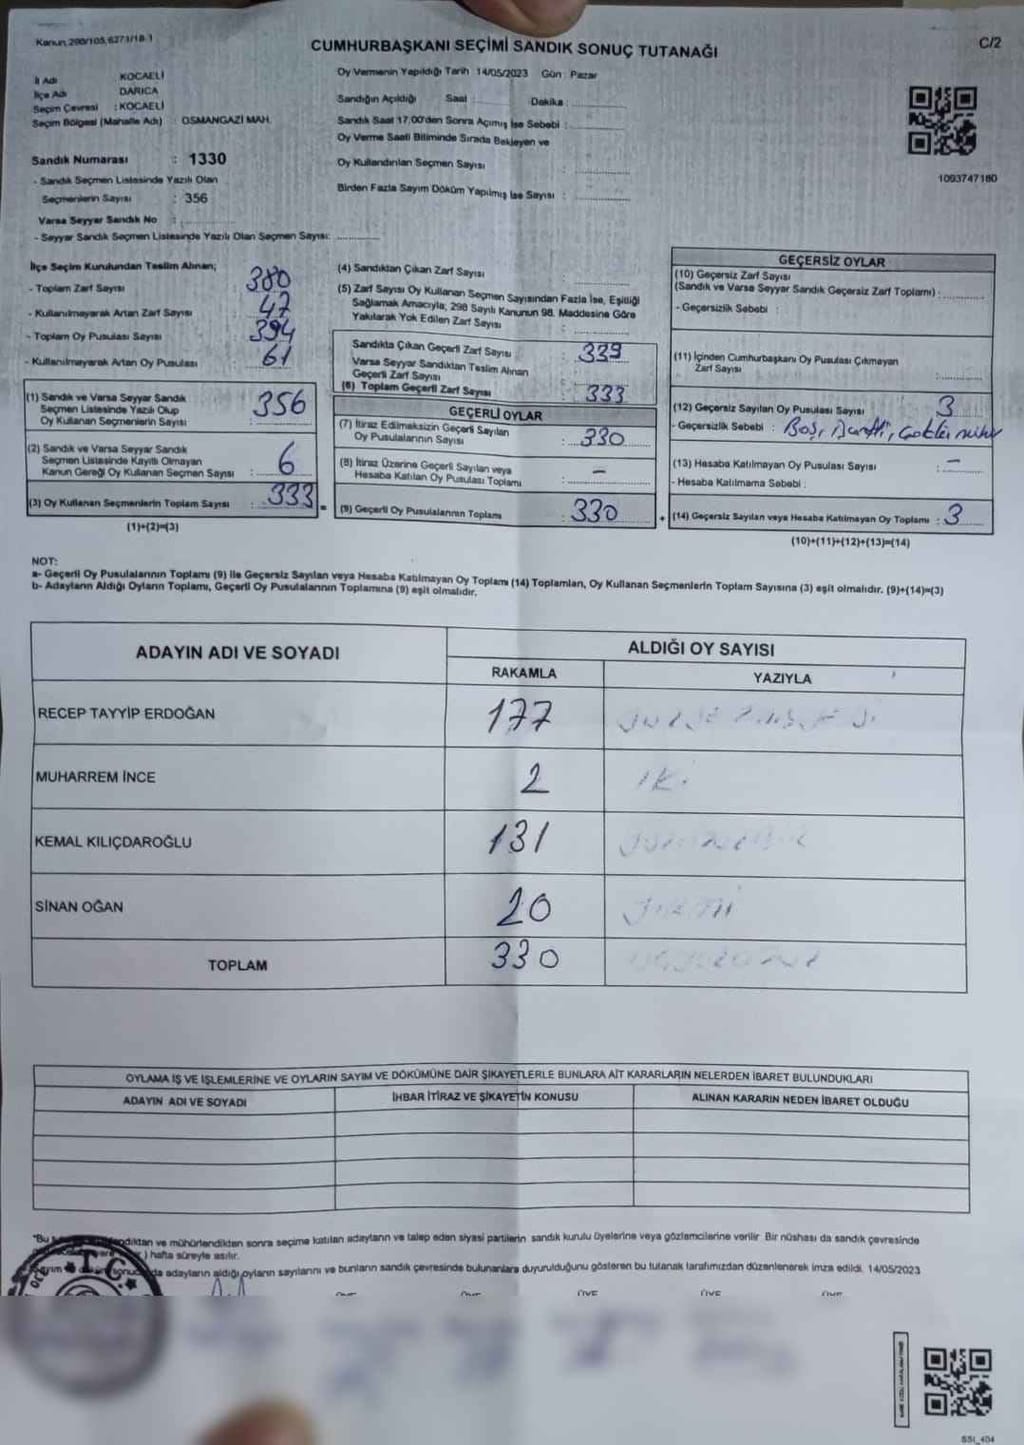 Kanun 298/105, 6271/18-1
CUMHURBAŞKANI SEÇİMİ SANDIK SONUÇ TUTANAĞI
C/2
İl Adı KOCAELİ
İlçe Adı DARICA
Seçim Çevresi : KOCAELİ
Seçim Bölgesi (Mahalle Adı) : OSMANGAZİ MAH.
Sandık Numarası : 1330
- Sandık Seçmen Listesinde Yazılı Olan
Seçmenlerin Sayısı : 356
Varsa Seyyar Sandık No :
- Seyyar Sandık Seçmen Listesinde Yazılı Olan Seçmen Sayısı:
Oy Vermenin Yapıldığı Tarih 14/05/2023 Gün : Pazar
Sandığın Açıldığı Saat : Dakika :
Sandık Saat 17.00'den Sonra Açımış İse Sebebi :
Oy Verme Saati Bitiminde Sırada Bekleyen ve
Oy Kullandırılan Seçmen Sayısı :
Birden Fazla Sayım Döküm Yapılmış İse Sayısı :
1093747180
İlçe Seçim Kurulundan Teslim Alınan;
- Toplam Zarf Sayısı : 380
- Kullanılmayarak Artan Zarf Sayısı : 47
- Toplam Oy Pusulası Sayısı : 394
- Kullanılmayarak Artan Oy Pusulası : 61
(1) Sandık ve Varsa Seyyar Sandık
Seçmen Listesinde Yazılı Olup
Oy Kullanan Seçmenlerin Sayısı : 356
(2) Sandık ve Varsa Seyyar Sandık
Seçmen Listesinde Kayıtlı Olmayan
Kanun Gereği Oy Kullanan Seçmen Sayısı : 6
(3) Oy Kullanan Seçmenlerin Toplam Sayısı : 333 =
(1)+(2)=(3)
(4) Sandıktan Çıkan Zarf Sayısı :
(5) Zarf Sayısı Oy Kullanan Seçmen Sayısından Fazla İse, Eşitliği
Sağlamak Amacıyla; 298 Sayılı Kanunun 98. Maddesine Göre
Yakılarak Yok Edilen Zarf Sayısı :
Sandıkta Çıkan Geçerli Zarf Sayısı : 339
Varsa Seyyar Sandıktan Teslim Alınan
Geçerli Zarf Sayısı :
(6) Toplam Geçerli Zarf Sayısı : 333
GEÇERLİ OYLAR
(7) İtiraz Edilmeksizin Geçerli Sayılan
Oy Pusulalarının Sayısı : 330
(8) İtiraz Üzerine Geçerli Sayılan veya
Hesaba Katılan Oy Pusulası Toplamı : -
(9) Geçerli Oy Pusulalarının Toplamı : 330 +
GEÇERSİZ OYLAR
(10) Geçersiz Zarf Sayısı
(Sandık ve Varsa Seyyar Sandık Geçersiz Zarf Toplamı) :
- Geçersizlik Sebebi :
(11) İçinden Cumhurbaşkanı Oy Pusulası Çıkmayan
Zarf Sayısı :
(12) Geçersiz Sayılan Oy Pusulası Sayısı : 3
- Geçersizlik Sebebi : Boş,
(13) Hesaba Katılmayan Oy Pusulası Sayısı : -
- Hesaba Katılmama Sebebi :
(14) Geçersiz Sayılan veya Hesaba Katılmayan Oy Toplamı : 3
(10)+(11)+(12)+(13)=(14)
NOT:
a- Geçerli Oy Pusulalarının Toplamı (9) ile Geçersiz Sayılan veya Hesaba Katılmayan Oy Toplamı (14) Toplamları, Oy Kullanan Seçmenlerin Toplam Sayısına (3) eşit olmalıdır. (9)+(14)=(3)
b- Adayların Aldığı Oyların Toplamı, Geçerli Oy Pusulalarının Toplamına (9) eşit olmalıdır.
ADAYIN ADI VE SOYADI
ALDIĞI OY SAYISI
RAKAMLA YAZIYLA
RECEP TAYYİP ERDOĞAN 177
MUHARREM İNCE 2 iki
KEMAL KILIÇDAROĞLU 131
SİNAN OĞAN 20
TOPLAM 330
OYLAMA İŞ VE İŞLEMLERİNE VE OYLARIN SAYIM VE DÖKÜMÜNE DAİR ŞİKAYETLERLE BUNLARA AİT KARARLARIN NELERDEN İBARET BULUNDUKLARI
ADAYIN ADI VE SOYADI İHBAR İTİRAZ VE ŞİKAYETİN KONUSU ALINAN KARARIN NEDEN İBARET OLDUĞU
"Bu dıktan ve mühürlendikten sonra seçime katılan adayların ve talep eden siyasi partilerin sandık kurulu üyelerine veya gözlemcilerine verilir Bir nüshası da sandık çevresinde
) hafta süreyle asılır.
da adayların aldığı oyların sayılarını ve bunların sandık çevresinde bulunanlara duyurulduğunu gösteren bu tutanak tarafımızdan düzenlenerek imza edildi. 14/05/2023
T.C.
ÜYE ÜYE ÜYE ÜYE ÜYE
SSI_404